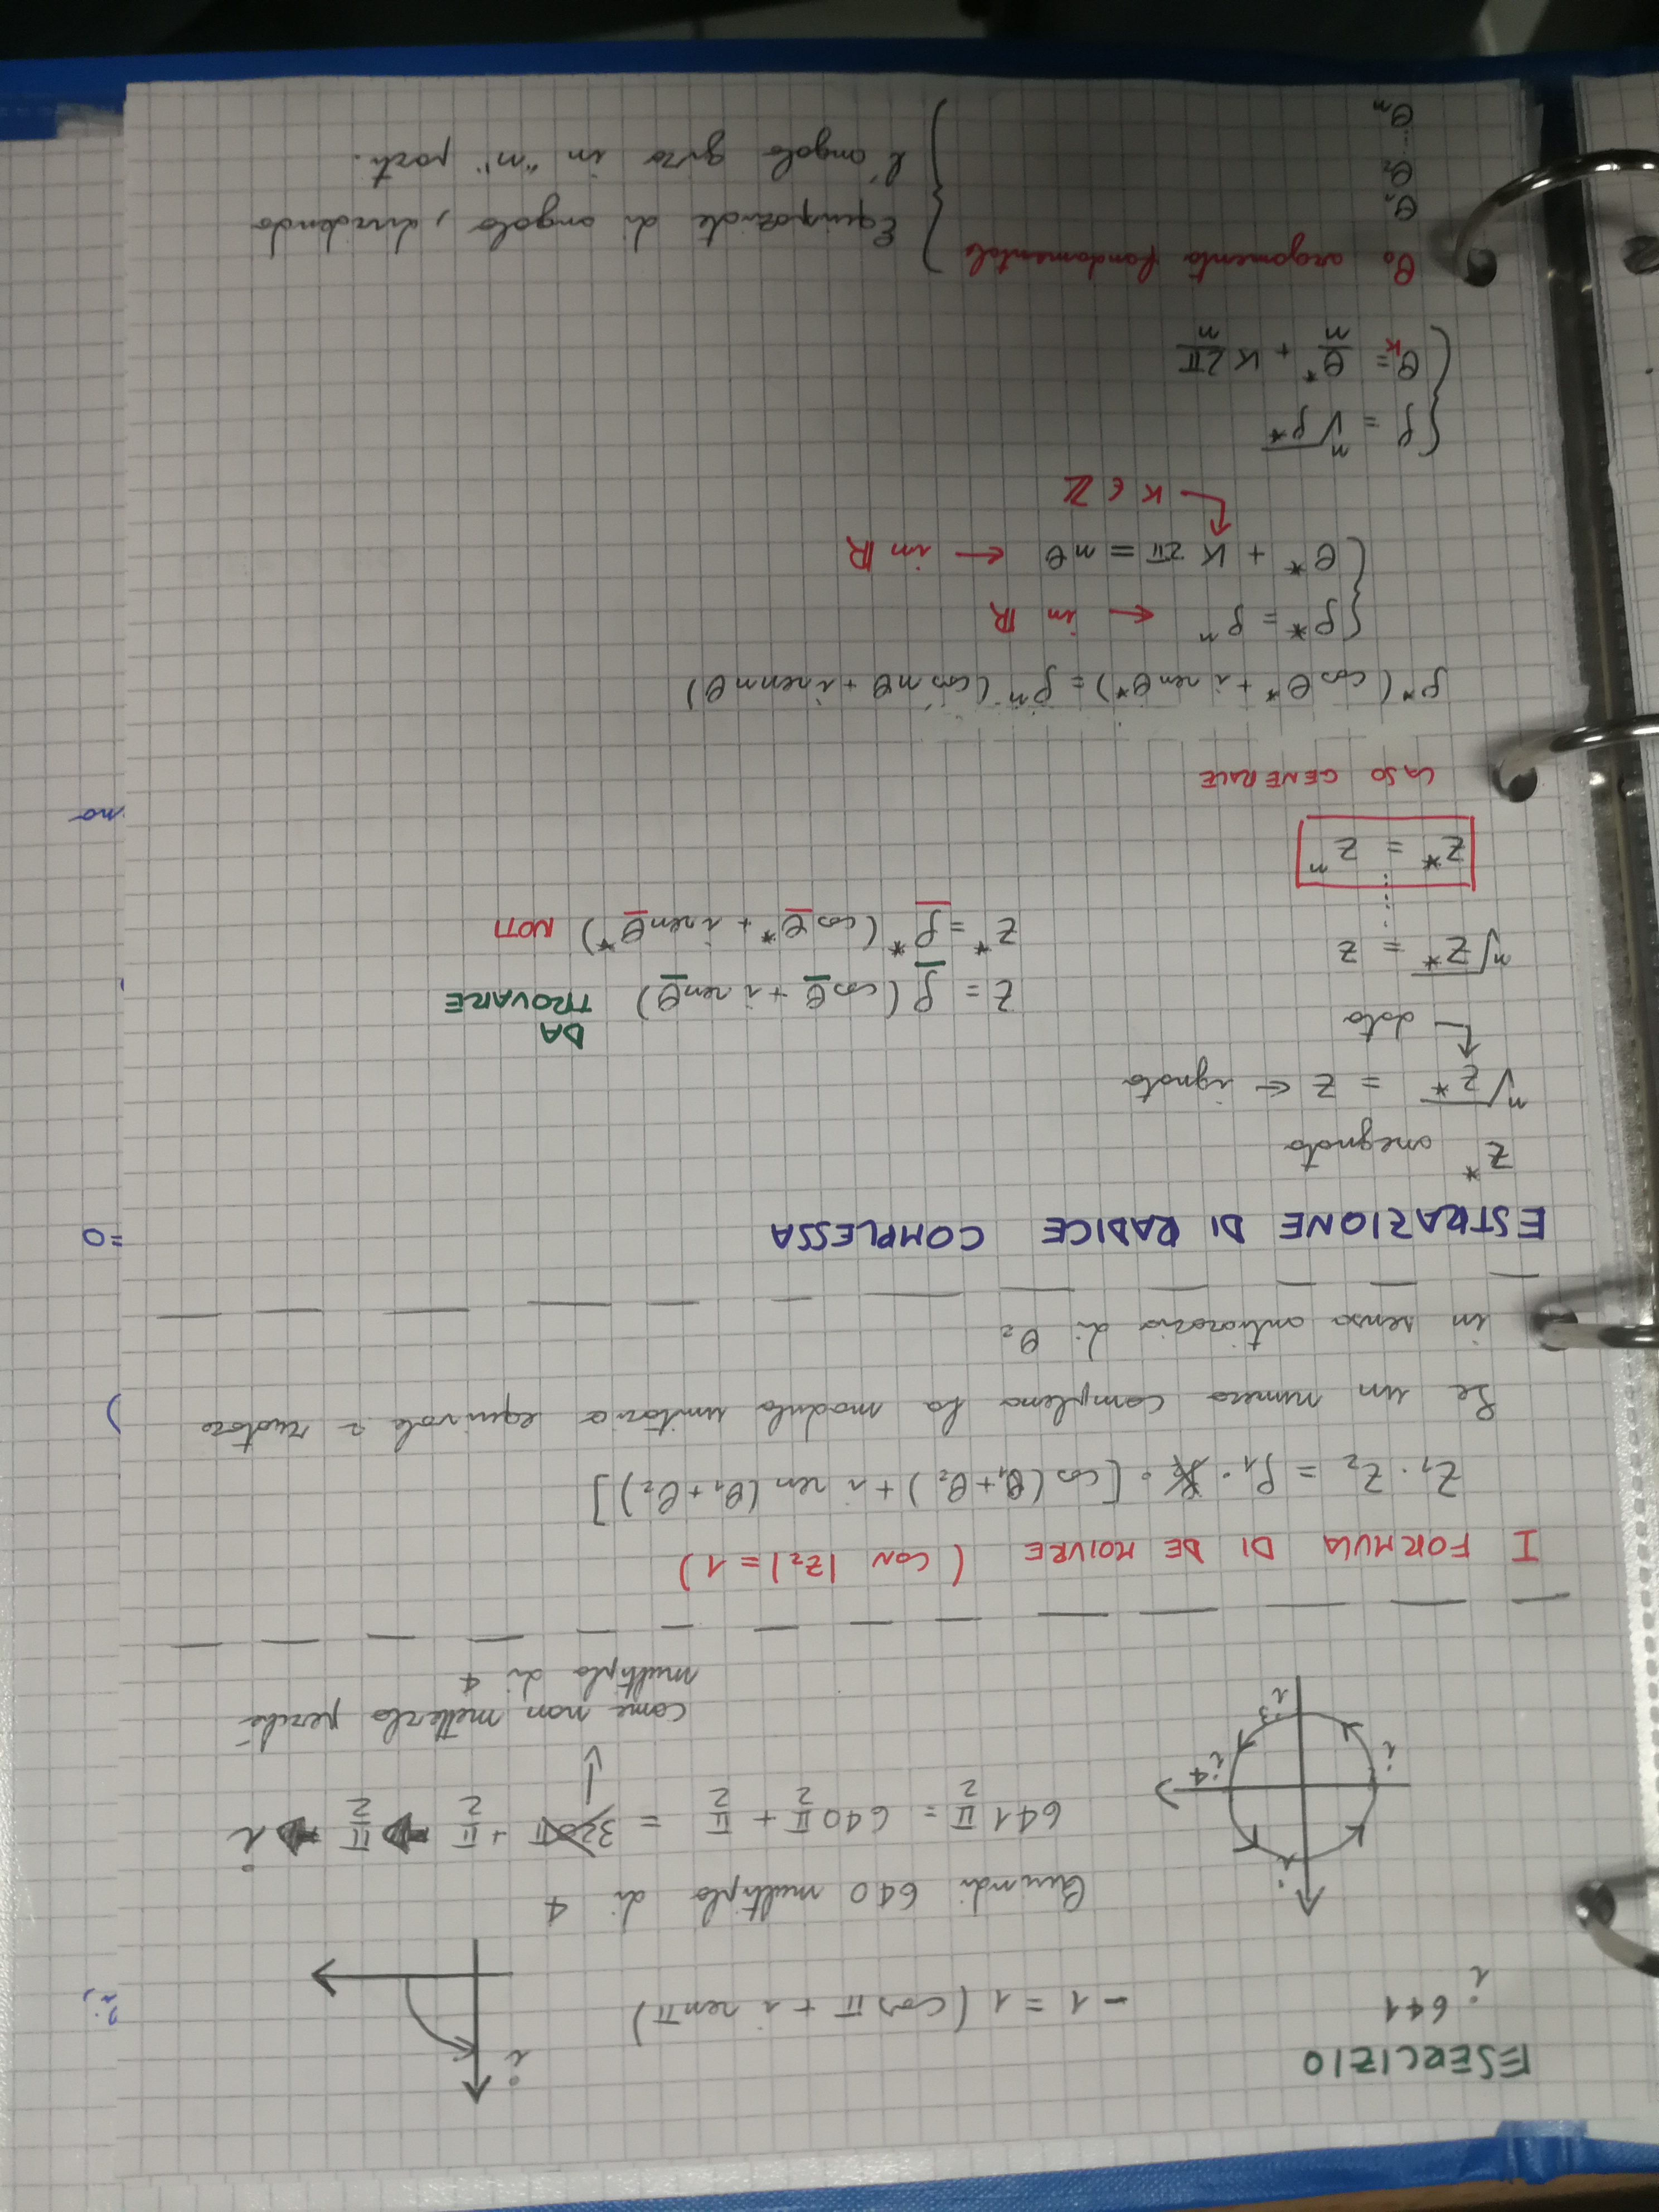 ESERCIZIO
i^641
-1 = 1 (cos π + i sen π)
i
i
i
i^3
i^4
Quindi 640 multiplo di 4
641 π/2 = 640 π/2 + π/2 = 320π + π/2 ➡ π/2 ➡ i
↓
come non metterlo perché
multiplo di 4
I FORMULA DI DE MOIVRE (CON |Z₂| = 1)
Z₁ · Z₂ = ρ₁ · ρ₂ · [cos (θ₁ + θ₂) + i sen (θ₁ + θ₂)]
Se un numero complesso ha modulo unitario equivale a ruotare
in senso antiorario di θ₂
ESTRAZIONE DI RADICE COMPLESSA
Z* assegnato
ⁿ√Z* = Z ← ignoto
↑ dato
ⁿ√Z* = Z
Z* = Z^n
CASO GENERALE
Z = ρ (cos θ + i sen θ) DA TROVARE
Z* = ρ* (cos θ* + i sen θ*) NOTI
ρ* (cos θ* + i sen θ*) = ρ^n (cos nθ + i sen nθ)
ρ* = ρ^n ← in ℝ
θ* + K 2π = nθ ← in ℝ
↑ K ∈ ℤ
ρ = ⁿ√ρ*
θ_K = θ*/n + K 2π/n
θ₀ argomento fondamentale
θ₁
θ₂
⋮
θₙ
Equispaziate di angolo, dividendo
l'angolo giro in "n" parti.
2i,
)
=0
no